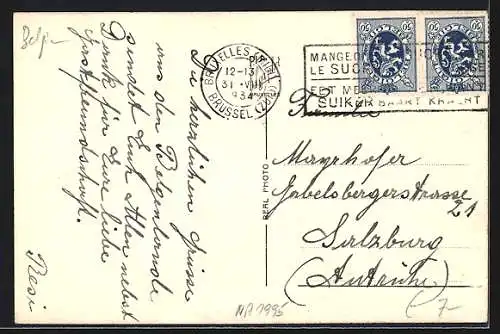 Belg.
Die herzlichen Grüsse
aus den Belgenlande
sendet Euch Allen nebst
Dank für Eure liebe
Gastfreundschaft.
Resi
BRUXELLES (MIDI)
12-13
31 · VIII
1934
BRUSSEL (ZUID)
MANGEZ
LE SUC
EET ME
SUIKER BAART KRACHT
REAL PHOTO
Familie
Mayrhofer
Gabelsbergerstrasse
21
Salzburg
(Autriche)
7-